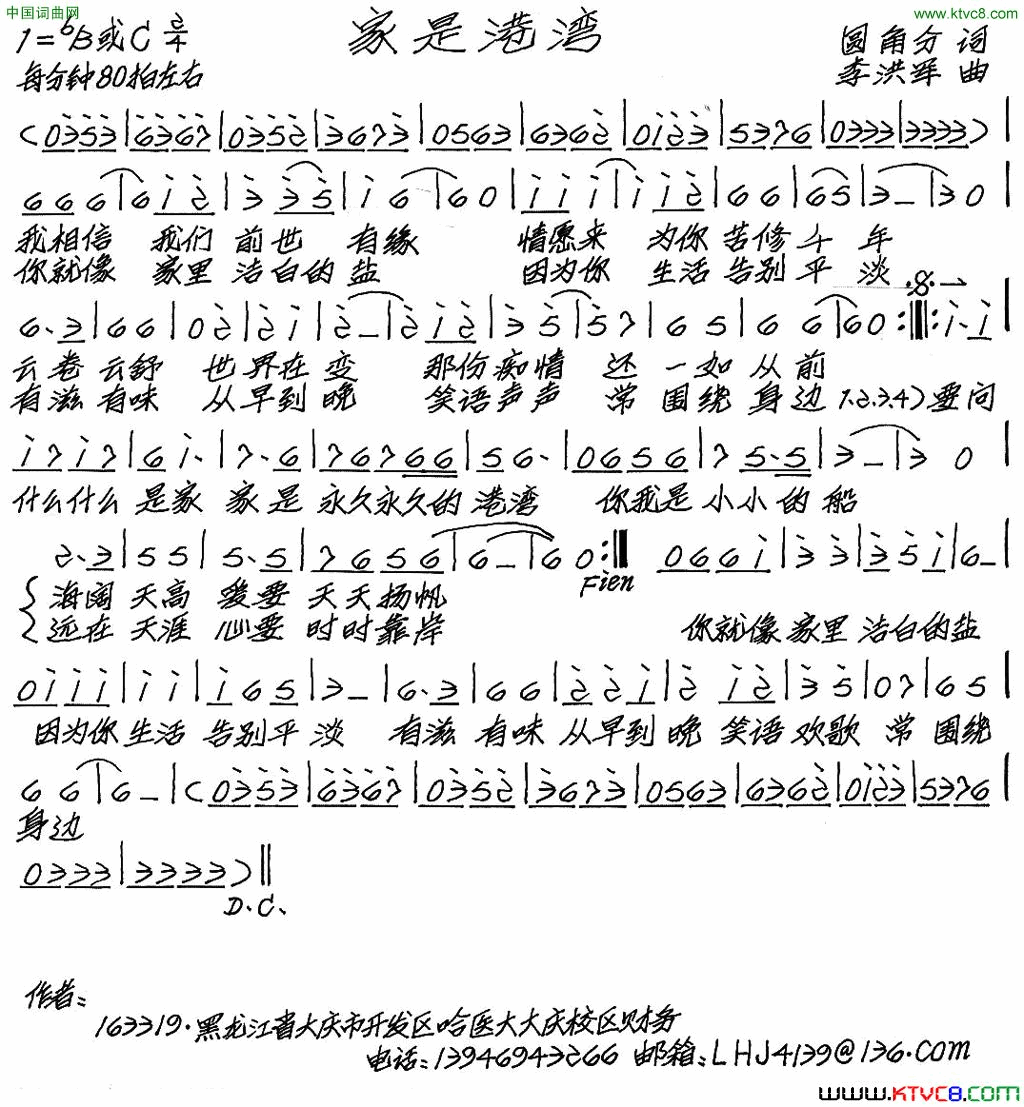 中国词曲网
www.ktvc8.com
家是港湾
1=ᵇB或C 2/4
圆角分 词
每分钟80拍左右
李洪军 曲
(03̇5̇3̇|6̇3̇6̇7̇|03̇5̇2̇|3̇673̇|0563|6362̇|01̇2̇3̇|5376|0333|3333)|
666|61̇2̇|3̇3̇5̇|1̇6|60|1̇1̇1̇|1̇1̇2̇|66|65|3–|30|
我相信 我们 前世 有缘 情愿来 为你 苦修 千 年
你就像 家里 洁白的盐 因为你 生活 告别 平 淡
6.3|66|02̇|2̇1̇|2̇–|2̇1̇2̇|3̇5|57|65|66|60:‖:1̇.1̇|
云卷 云舒 世界在变 那份痴情 还 一如 从 前
有滋有味 从早到晚 笑语声声 常 围绕 身边 1.2.3.4)要问
1̇71̇7|61̇.|7.6|76766|56.|0656|75.5|3–|3 0|
什么什么 是家 家是 永久永久的港湾 你我是小小的船
2.3|55|5.5|7656|6–|60:‖ 0661̇|3̇3̇|3̇51̇|6–|
Fien
海阔 天高 爱要 天天扬帆
远在 天涯 心要 时时靠岸 你就像 家里 洁白的盐
01̇1̇1̇|1̇1̇|1̇65|3–|6.3|66|2̇2̇1̇|2̇ 1̇2̇|3̇5|07|65|
因为你 生活 告别平 淡 有滋 有味 从早到 晚 笑语 欢歌 常 围绕
66|6–|(03̇5̇3̇|6̇3̇6̇7̇|03̇5̇2̇|3̇673̇|0563|6362̇|01̇2̇3̇|5376|
身边
0333|3333)‖
D.C.
作者:
163319.黑龙江省大庆市开发区哈医大大庆校区财务
电话:13946943266 邮箱:LHJ4139@136.com
www.KTVC8.COM